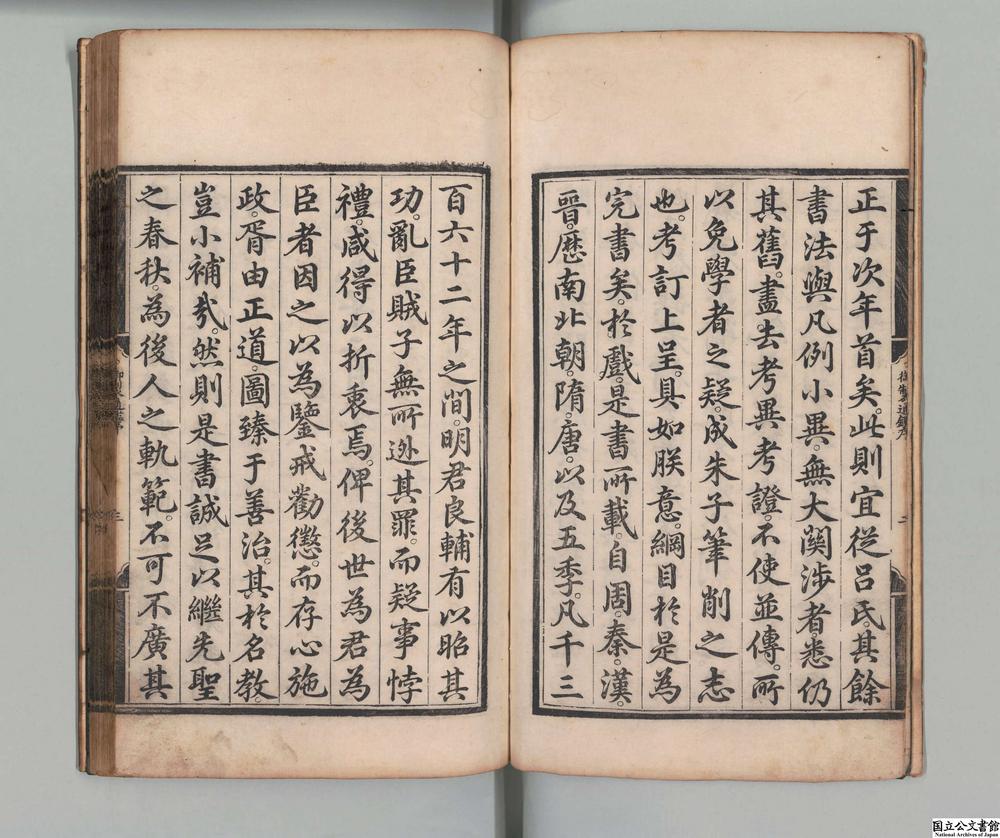 正于次年首矣。此則宜從呂氏。其餘
書法與凡例小異。無大關涉者。悉仍
其舊。盡去考異考證。不使並傳。所
以免學者之疑。成朱子筆削之志
也。考訂上呈。具如朕意。綱目於是為
完書矣。於戲。是書所載。自周。秦。漢。
晉。歷南北朝。隋。唐。以及五季。凡千三
百六十二年之間。明君良輔有以昭其
功。亂臣賊子無所逃其罪。而疑事悖
禮。咸得以折衷焉。俾後世為君為
臣者因之以為鑒戒勸懲。而存心施
政。胥由正道。圖臻于善治。其於名教。
豈小補哉。然則是書誠足以繼先聖
之春秋。為後人之軌範。不可不廣其
三
国立公文書館
National Archives of Japan